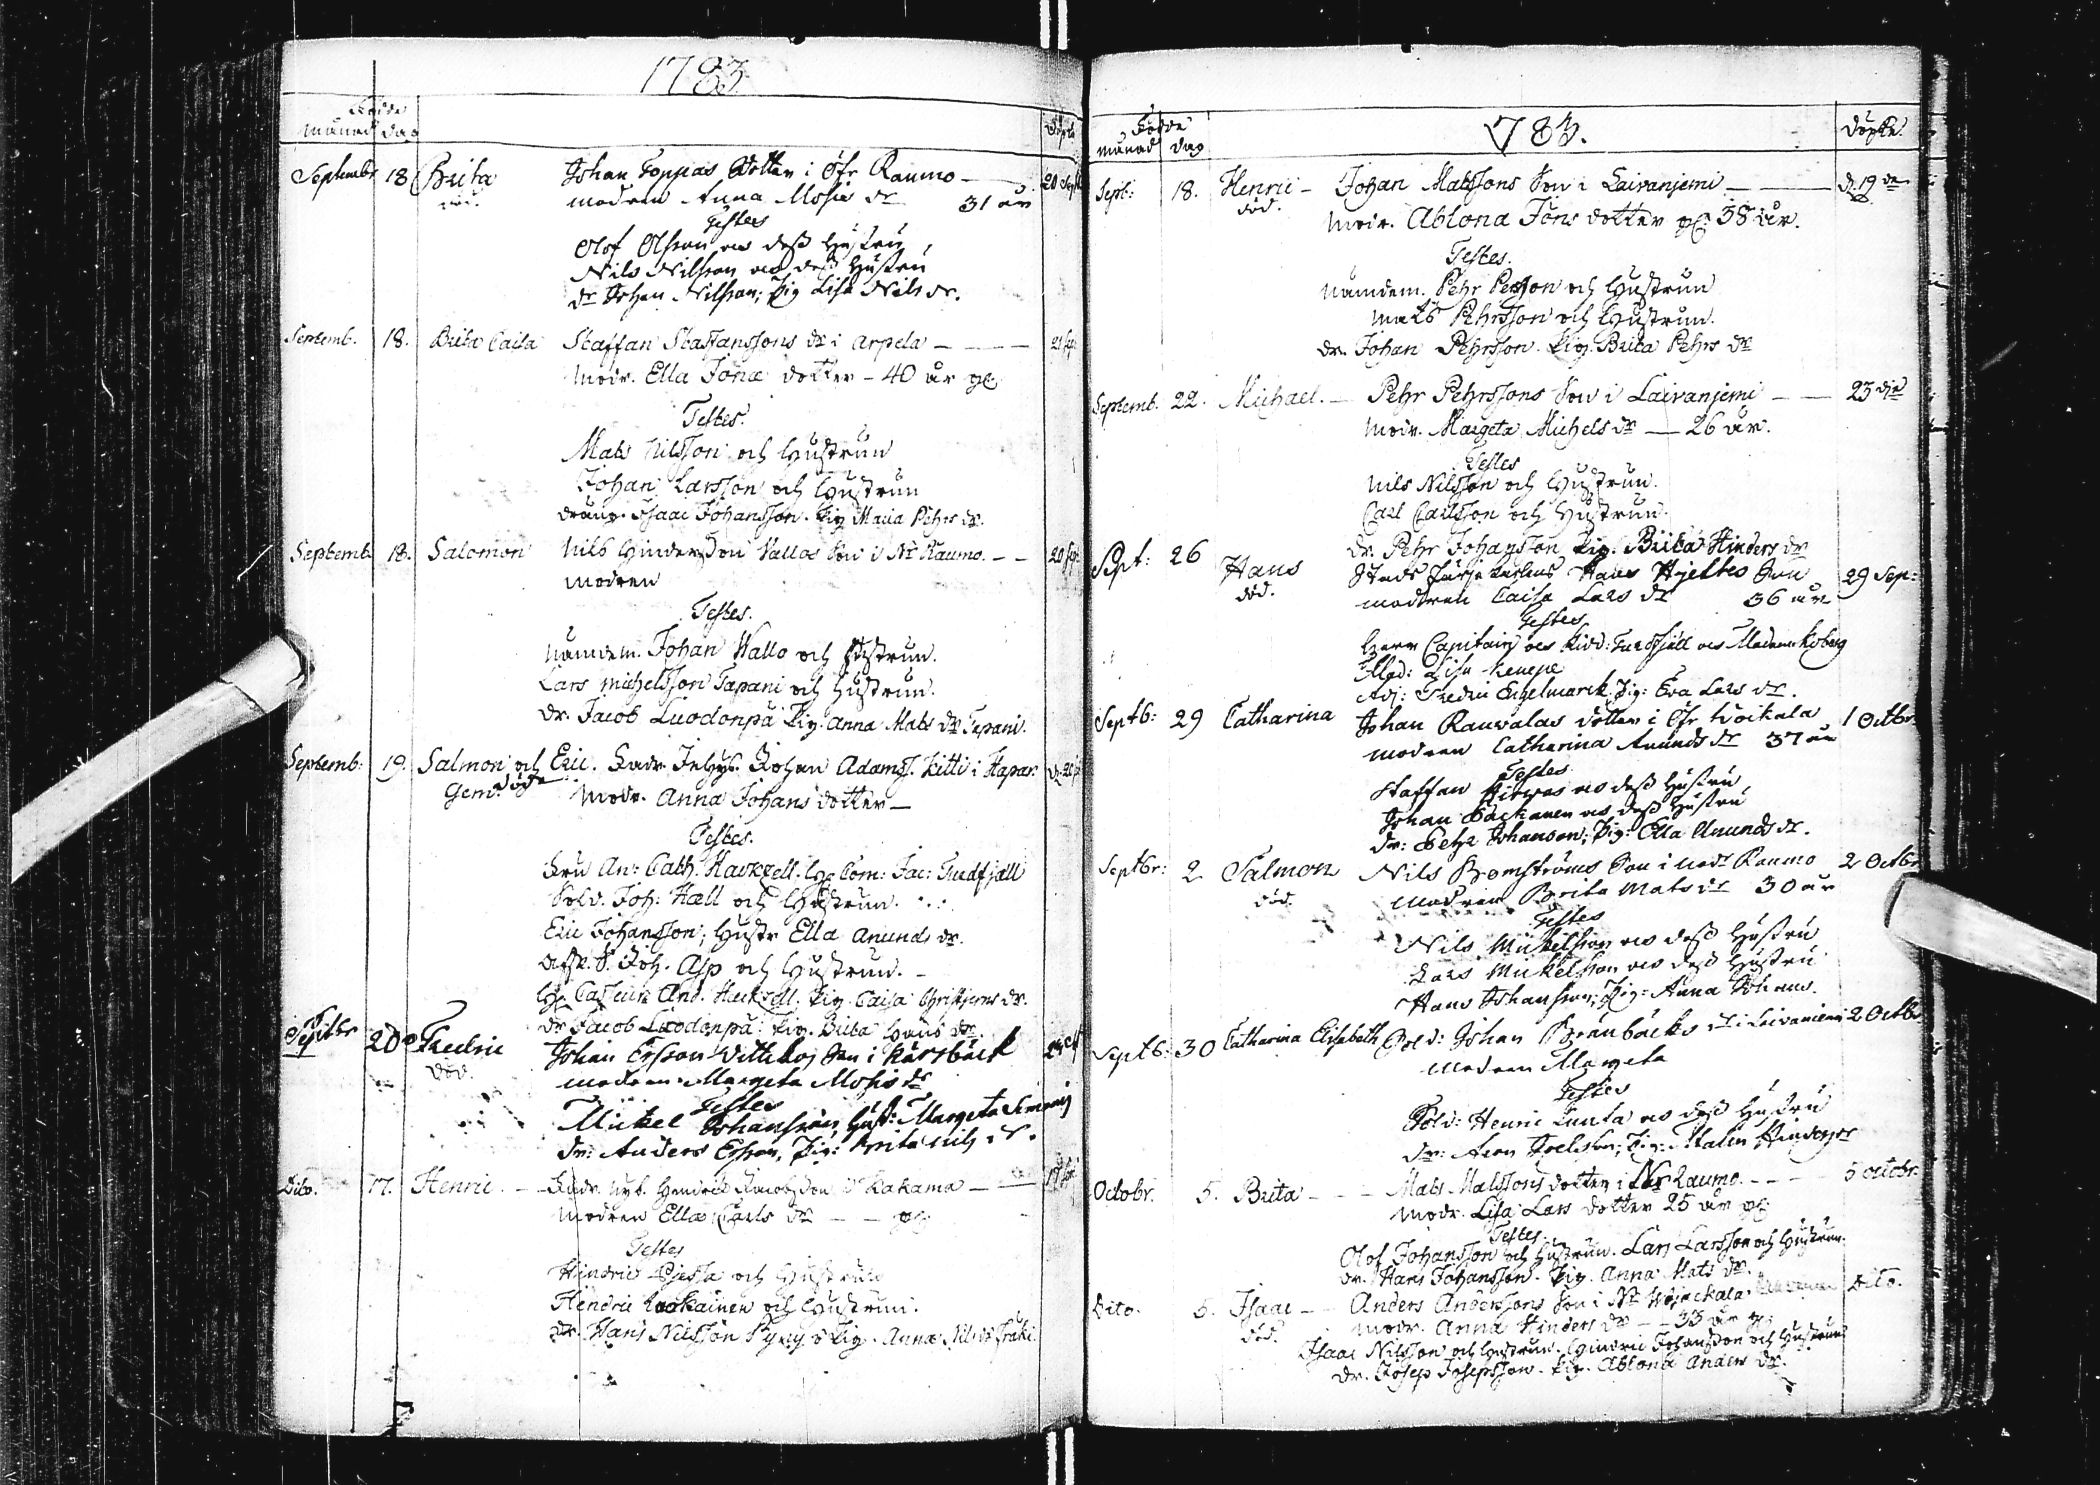 1783
Födde
månad dag
Döpte
Septembr 18 Brita Johan Toppias Dotter i Öfr Raumo 20 Sept
död. modren Anna Mosis dr 31 år
Testes
Olof Olsson och dess hustru
Nils Nilsson och dess hustru
dr Johan Nilsson; Pig Lisa Nils dr.
Septemb. 18. Brita Caisa Staffan Staffanssons dr i Arpela 21
Modr. Ella Jönæ dotter - 40 år
Testes.
Mats Nilsson och Hustrun
Johan Larsson och Hustrun
dräng. Isaac Johansson. Pig Maria Pehrs dr.
Septemb. 18. Salomon Nils Hindersson Vallos Son i Nr Raumo. 20
modren
Testes.
Nämdem. Johan Wallo och Hustrun.
Lars Michelsson Tapani och Hustrun.
dr. Jacob Luodonpä Pig. Anna Mats dr Tapani.
Septemb: 19. Salmon och Eric. Johan Adamss. Kitti i Hapar.
Gem. död Modr. Anna Johans dotter
Testes.
Fru An: Cath. Hackzell. Com: Jac:
Sold. Joh: Häll och Hustrun.
Eric Johansson; Hustr Ella Anunds dr.
Joh. Asp och Hustrun.
And. Hackzell. Pig. Caisa
dr Jacob Luodonpä. Pig. Brita Hans dr.
Septbr 20 Fredric Johan Ersson son i Kärsbäck
död. modren Margeta Mosis dr
Testes
Mickel Johansson, Hust: Margeta
dr: Anders Ersson, Pig: Brita Nils dr.
Dito. 17. Henric. Hendric Jacobsson i Kakama
modren Ella Carls dr
Testes
Hindric och Hustrun
Hendric och Hustrun.
dr. Hans Nilsson Pig. Anna Nils dr
1783.
Födde
månad dag
Döpte.
Sept: 18. Henric Johan Matssons Son i Laivanjemi d. 19
död. Modr. Ablona Jöns dotter 38 år.
Testes.
Nämdem. Pehr Persson och Hustrun
Mats Pehrsson och Hustrun.
dr. Johan Pehrsson. Pig. Brita Pehrs dr
Septemb. 22. Michael. Pehr Pehrssons Son i Laivanjemi 23
Modr. Margeta Michels dr 26 år.
Testes
Nils Nilsson och Hustrun.
Carl Carlsson och Hustrun.
dr. Pehr Johansson Pig. Brita Hinders dr
Sept: 26 Hans Hans Hjeltes Son 29 Sep:
död. modren Caisa Lars dr 36 år
Testes
Herr Capitain
Mad: Lisa
Adj: Fredric Engelmarck. Pig: Eva Lars dr.
Septb: 29 Catharina Johan Rauvalas dotter i Öfr Woikala 1 Octbr:
modren Catharina Anunds dr 37 år
Testes
Staffan och dess hustru
Johan Backanen och dess hustru
dr: Petr Johanson; Pig: Ella Anunds dr.
Septbr: 2 Salmon Nils Bomströms Son i Nedr Raumo 2 Octbr
död. modren Brita Mats dr 30 år
Testes
Nils Mickelsson och dess hustru
Lars Mickelsson och dess hustru
Hans Johansson; Pig: Anna Johans.
Septb: 30 Catharina Elisabeth Sold: Johan Brånbäcks dr i Laivaniemi 2 Octbr
modren Margeta
Testes
Sold: Henric Lunta och dess hustru
dr: Aron Joelsson; Pig: Malin Hinders dr
Octobr. 5. Brita Mats Matssons dotter i Nr Raumo. 5 octobr.
Modr. Lisa Lars dotter 25 år
Testes.
Olof Johansson och Hustrun. Lars Larsson och Hustrun.
dr. Hans Johansson. Pig. Anna Mats dr.
Dito. 5. Isaac Anders Anderssons Son i Nr Wojackala Dito.
död. modr. Anna Hinders dr 33 år
Isaac Nilsson och Hustrun. Hindric Johansson och Hustrun
dr. Josep Josepsson. Pig. Ablona Anders dr.